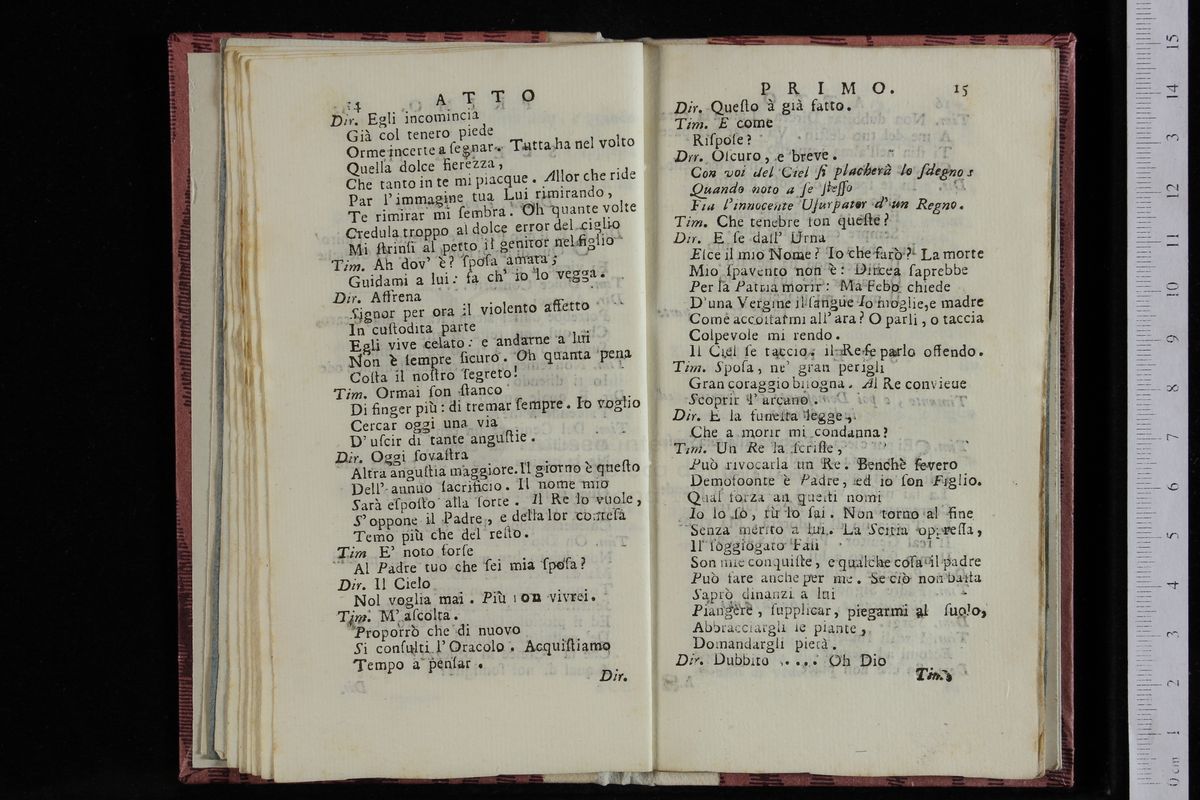 14 ATTO
Dir. Egli incomincia
Già col tenero piede
Orme incerte a ſegnar. Tutta ha nel volto
Quella dolce fierezza,
Che tanto in te mi piacque. Allor che ride
Par l'immagine tua Lui rimirando,
Te rimirar mi ſembra. Oh quante volte
Credula troppo al dolce error del ciglio
Mi ſtrinſi al petto il genitor nel figlio
Tim. Ah dov' è? ſpoſa amata;
Guidami a lui: fa ch' io lo vegga.
Dir. Affrena
Signor per ora il violento affetto
In cuſtodita parte
Egli vive celato: e andarne a lui
Non è ſempre ſicuro. Oh quanta pena
Coſta il noſtro ſegreto!
Tim. Ormai ſon ſtanco
Di finger più: di tremar ſempre. Io voglio
Cercar oggi una via
D' uſcir di tante anguſtie.
Dir. Oggi ſovaſtra
Altra anguſtia maggiore. Il giorno è queſto
Dell' annuo ſacrificio. Il nome mio
Sarà eſpoſto alla ſorte. Il Re lo vuole,
S' oppone il Padre, e della lor conteſa
Temo più che del reſto.
Tim E' noto forſe
Al Padre tuo che ſei mia ſpoſa?
Dir. Il Cielo
Nol voglia mai. Più non vivrei.
Tim. M' aſcolta.
Proporrò che di nuovo
Si conſulti l' Oracolo. Acquiſtiamo
Tempo a penſar.
Dir.
PRIMO. 15
Dir. Queſto à già fatto.
Tim. E come
Riſpoſe?
Dir. Oſcuro, e breve.
Con voi del Ciel ſi placherà lo ſdegno
Quando noto a ſe ſteſſo
Fia l'innocente Uſurpator d' un Regno.
Tim. Che tenebre ſon queſte?
Dir. E ſe dall' Urna
Eſce il mio Nome? Io che farò? La morte
Mio ſpavento non è: Dircea ſaprebbe
Per la Patria morir: Ma Febo chiede
D'una Vergine il ſangue Io moglie, e madre
Come accoſtarmi all' ara? O parli, o taccia
Colpevole mi rendo.
Il Ciel ſe taccio: il Re ſe parlo offendo.
Tim. Spoſa, ne' gran perigli
Gran coraggio biſogna. Al Re convieue
Scoprir l' arcano.
Dir. E la funeſta legge,
Che a morir mi condanna?
Tim. Un Re la ſcriſſe,
Può rivocarla un Re. Benchè ſevero
Demofoonte è Padre, ed io ſon Figlio.
Qual forza an queſti nomi
Io lo ſò, tù lo ſai. Non torno al fine
Senza merito a lui. La Scitia oppreſſa,
Il ſoggiogato Faſi
Son mie conquiſte, e qualche coſa il padre
Può fare anche per me. Se ciò non baſta
Saprò dinanzi a lui
Piangere, ſupplicar, piegarmi al ſuolo,
Abbracciargli le piante,
Domandargli pietà.
Dir. Dubbito ..... Oh Dio
Tim.